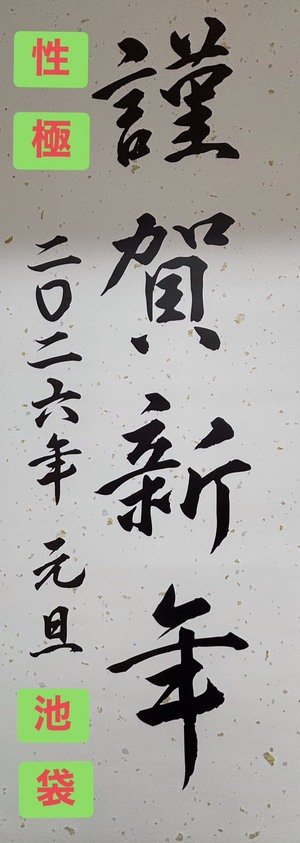 謹賀新年
性極
二〇二六年 元旦
池袋